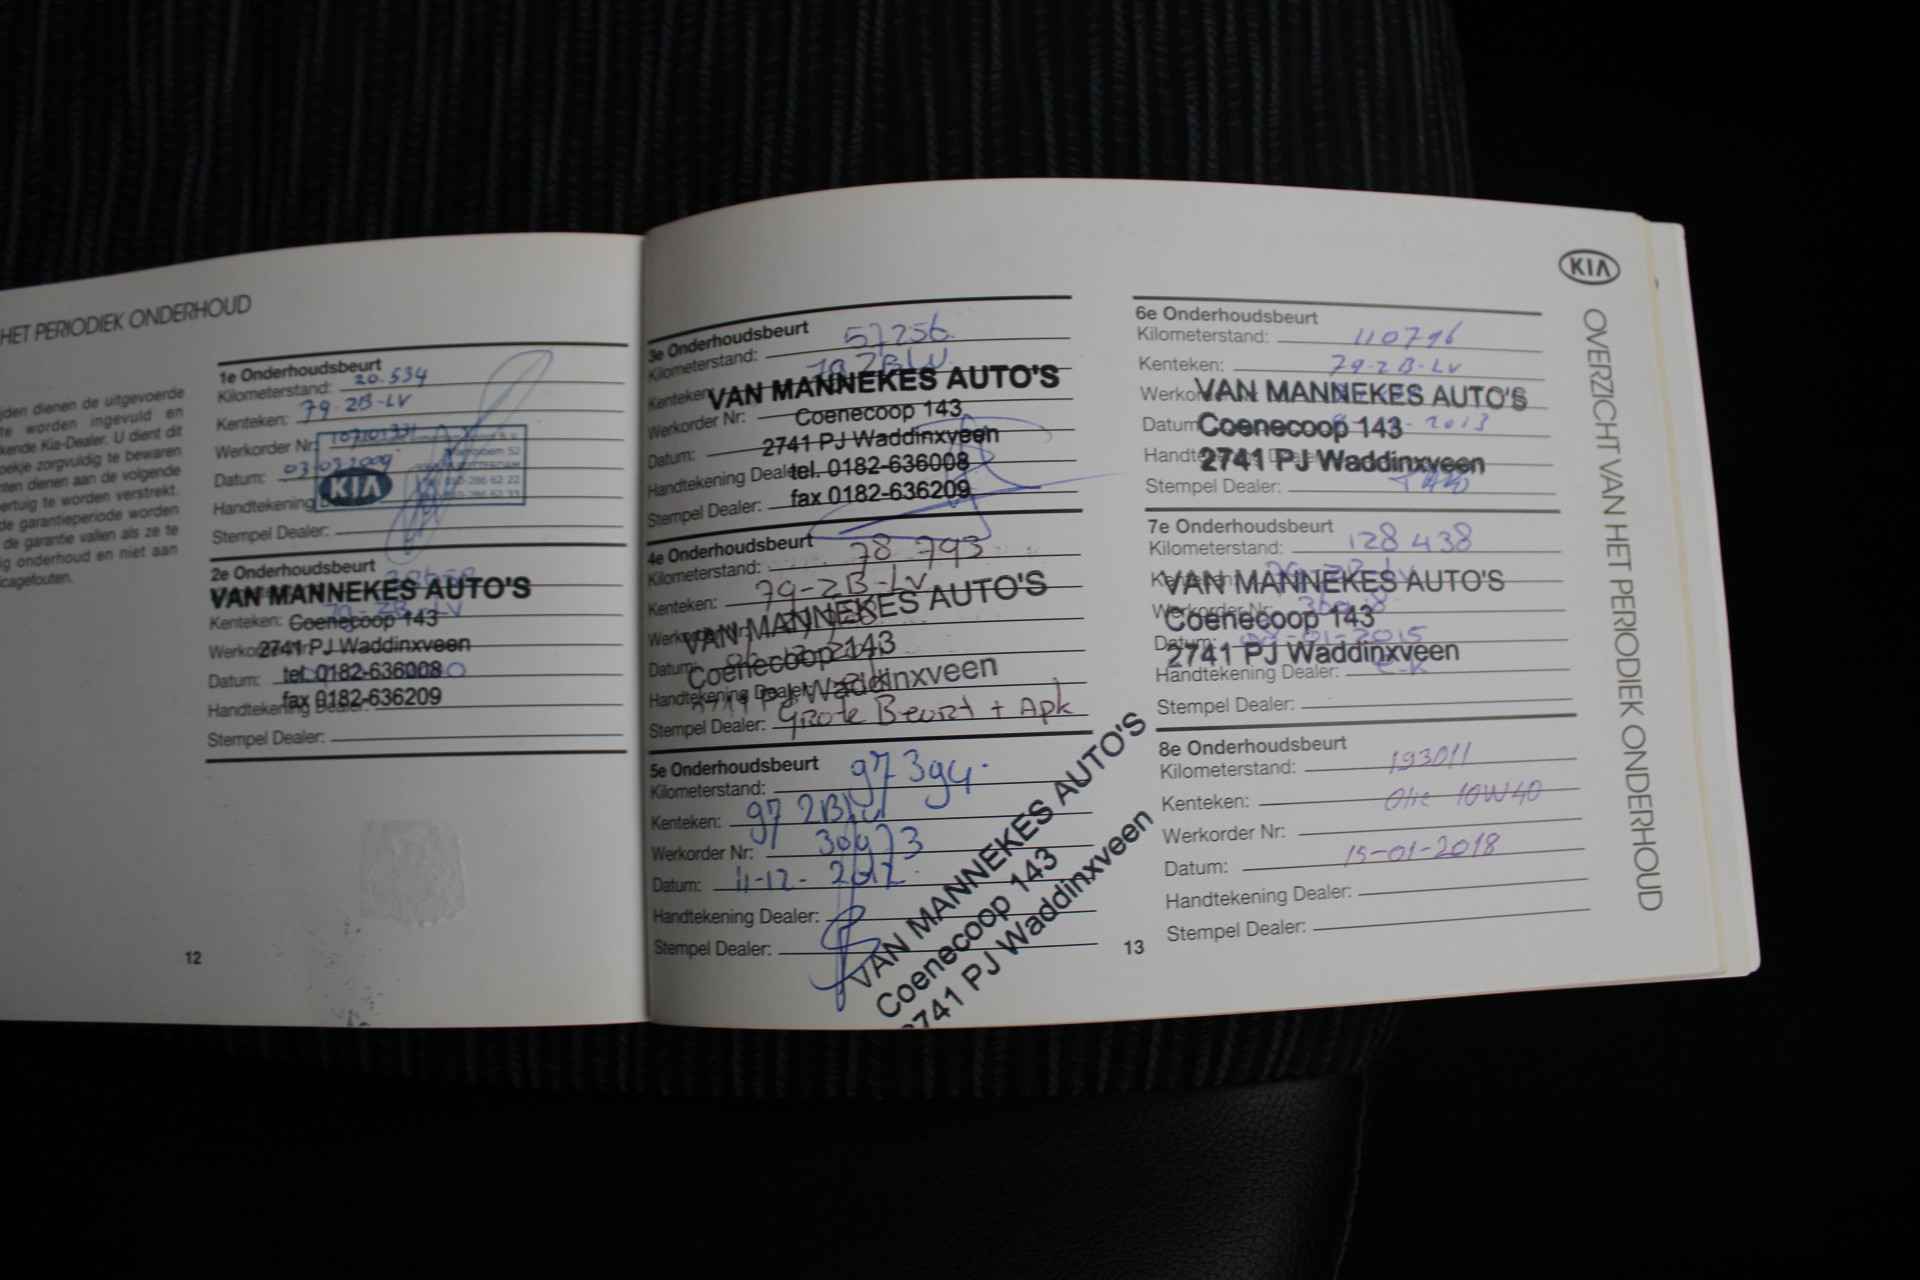 HET PERIODIEK ONDERHOUD
jden dienen de uitgevoerde
te worden ingevuld en
kende Kia-Dealer. U dient dit
oekje zorgvuldig te bewaren
nten dienen aan de volgende
ertuig te worden verstrekt.
de garantieperiode worden
de garantie vallen als ze te
ig onderhoud en niet aan
icagefouten.
1e Onderhoudsbeurt
Kilometerstand: 20.534
Kenteken: 79-2B-LV
Werkorder Nr
Datum: 03-03-2009
KIA
Handtekening
Stempel Dealer:
2e Onderhoudsbeurt
VAN MANNEKES AUTO'S
Kenteken: 79-2B-LV
Coenecoop 143
2741 PJ Waddinxveen
Datum:
tel. 0182-636008
fax 0182-636209
Handtekening Dealer:
Stempel Dealer:
12
3e Onderhoudsbeurt
Kilometerstand: 57256
Kenteken
VAN MANNEKES AUTO'S
Coenecoop 143
Werkorder Nr:
2741 PJ Waddinxveen
Datum:
tel. 0182-636008
Handtekening Deal
fax 0182-636209
Stempel Dealer:
4e Onderhoudsbeurt
Kilometerstand: 78 793
Kenteken: 79-2B-LV
VAN MANNEKES AUTO'S
Coenecoop 143
Datum:
2741 PJ Waddinxveen
Handtekening Dealer:
Stempel Dealer: Grote Beurt + Apk
5e Onderhoudsbeurt
Kilometerstand: 97394.
Kenteken: 97 2B LV
Werkorder Nr: 30973
Datum: 11-12-2012.
Handtekening Dealer:
Stempel Dealer:
VAN MANNEKES AUTO'S
Coenecoop 143
2741 PJ Waddinxveen
13
KIA
OVERZICHT VAN HET PERIODIEK ONDERHOUD
6e Onderhoudsbeurt
Kilometerstand: 110796
Kenteken: 79-2B-LV
VAN MANNEKES AUTO'S
Datum 2013
Coenecoop 143
2741 PJ Waddinxveen
Stempel Dealer:
7e Onderhoudsbeurt
Kilometerstand: 128 438
VAN MANNEKES AUTO'S
Werkorder Nr:
Coenecoop 143
Datum: -01-2015
2741 PJ Waddinxveen
Handtekening Dealer: C-K
Stempel Dealer:
8e Onderhoudsbeurt
Kilometerstand: 193011
Kenteken: Olie 10W40
Werkorder Nr:
Datum: 15-01-2018
Handtekening Dealer:
Stempel Dealer: